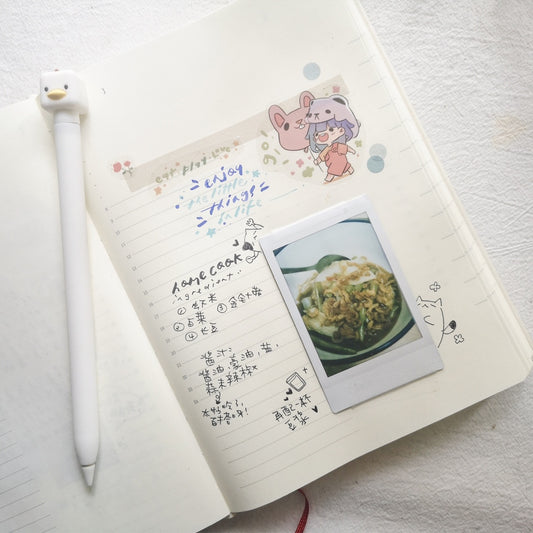 eat play love
enjoy
the little
things
in life
home cook
ingredient:
① 虾米
② 白菜 ③ 金针菇
④ 长豆
酱汁:
酱油, 蠔油, 盐,
蒜末辣椒
好吃了,
再配一杯
豆浆